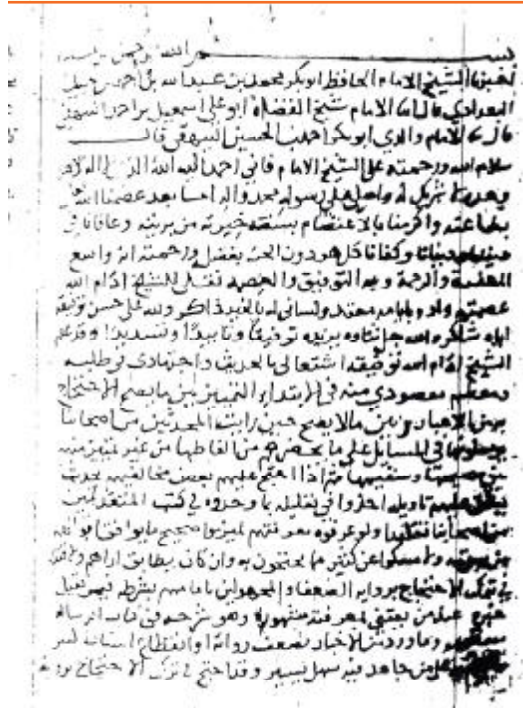 بسم الله الرحمن الرحيم
الشيخ الامام الحافظ ابو بكر محمد بن عبد الله بن احمد بن
البغدادي قال الامام شيخ القضاة ابو على اسمعيل بن احمد بن
قال الامام والدي ابو بكر احمد بن الحسين البيهقي قال
سلام الله ورحمته على الشيخ الامام فانى احمد اليه الله الذي لا اله الا هو
وحده لا شريك له واصلى على رسوله محمد واله اما بعد عصمنا الله
بطاعته واكرمنا بالاعتصام بسنة خيرته من بريته
وكفانا كل هول دون الجنة بفضله ورحمته انه واسع
المغفرة والرحمة وبه التوفيق والعصمة للشيخ ادام الله
عصمته ولسانى له بالخير ذاكر ولله على حسن توفيقه
اياه شاكر والله جل ثناؤه يزيده توفيقا وتاييدا وتسديدا وقد علم
الشيخ ادام الله توفيقه اشتغالى بالحديث واجتهادى فى طلبه
ومعظم مقصودي منه فى الابتداء التمييز بين ما يصح الاحتجاج
به من الاخبار وبين ما لا يصح حين رايت المحدثين من اصحابنا
يرسلونها فى المسائل على ما يحضرهم من الفاظها من غير تمييز منهم
بين صحيحها وسقيمها ثم اذا احتج عليهم بعض مخالفيهم بحديث
تاويله اخذوا فى تعليله بما وجدوه فى كتب المتقدمين
من اصحابنا تقليدا ولو عرفوه معرفتهم لميزوا صحيح ما يوافق اقوالهم
من سقيمه ولامسكوا عن كثير مما يحتجون به وان كان يطابق اراءهم
فى ترك الاحتجاج برواية الضعفاء والمجهولين بامامهم فشرطه فيمن يقبل
خبره عند من يعتني بمعرفته مشهور وهو بشرحه فى كتاب الرسالة
وما ورد من الاخبار بضعف رواته او انقطاع اسناده
على من جاهد فيه سهل يسير وقد احتج فى ترك الاحتجاج